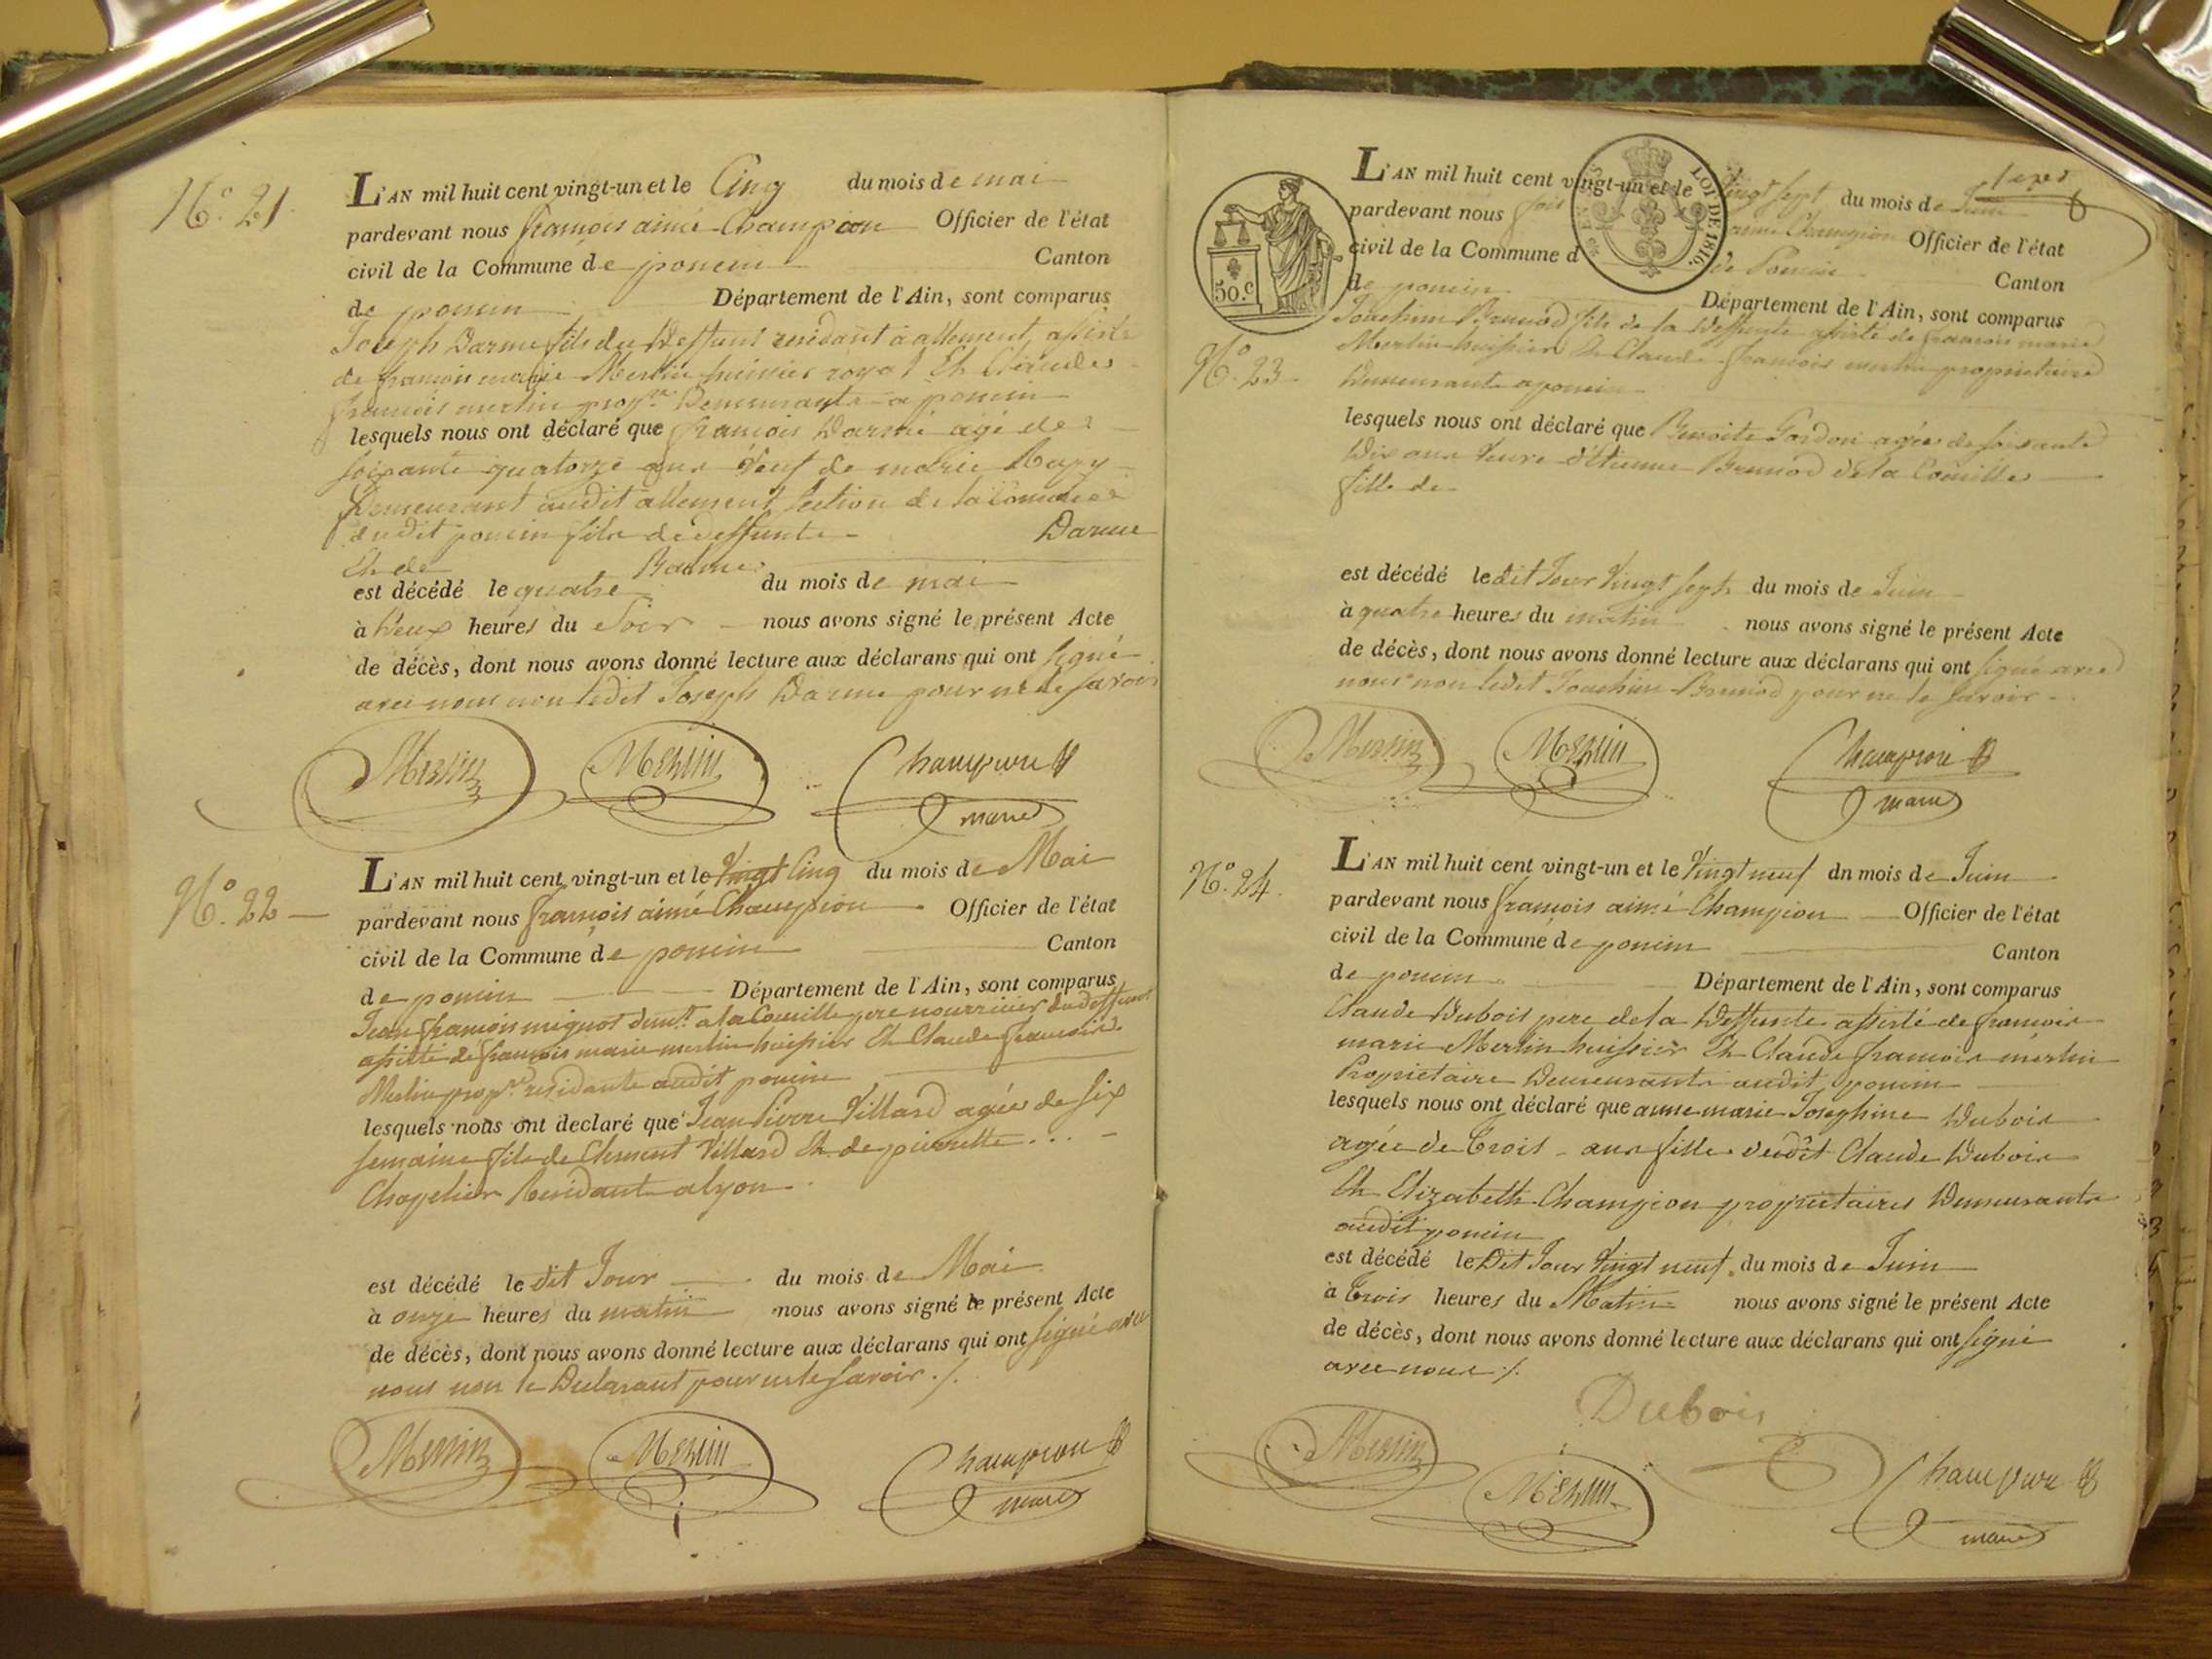 N.° 21.
L'AN mil huit cent vingt-un et le Cinq du mois de mai
pardevant nous françois aimé Champion Officier de l'état
civil de la Commune de poncin Canton
de poncin Département de l'Ain, sont comparus
Joseph Darme fils du deffunt residant à allement, assisté
de françois marie Merlin huissier royal Et Claude
françois merlin propre demeurants a poncin
lesquels nous ont déclaré que françois Darme agé de
soixante quatorze ans veuf de marie
Demeurant audit allement section de la Commune
dudit poncin fils de deffunts Darme
Et de
est décédé le quatre du mois de mai
à Deux heures du Soir nous avons signé le présent Acte
de décès, dont nous avons donné lecture aux déclarans qui ont signé
avec nous non ledit Joseph Darme pour ne le savoir
Merlin Merlin Champion
maire
N.° 22
L'AN mil huit cent vingt-un et le Vingt Cinq du mois de Mai
pardevant nous françois aimé Champion Officier de l'état
civil de la Commune de poncin Canton
de poncin Département de l'Ain, sont comparus
Jean françois mignot demt. a la Coueille pere nourricier du deffunt
assisté de françois marie merlin huissier Et Claude françois
Merlin propre residants audit poncin
lesquels nous ont declaré que Jean Pierre Villard agée de six
semaine fils de Clement Villard Et de pierrette . . .
Chapelier Residants a lyon
est décédé le dit Jour du mois de Mai
à onze heures du matin nous avons signé le présent Acte
de décès, dont nous avons donné lecture aux déclarans qui ont signé avec
nous non le Declarant pour ne le savoir ./.
Merlin Merlin Champion
maire
50.c
LOI DE 1816.
L'AN mil huit cent vingt-un et le vingt sept du mois de Juin
pardevant nous aimé Champion Officier de l'état
civil de la Commune d de Poncin Canton
de poncin Département de l'Ain, sont comparus
N.° 23
Joachim Brunod fils de la deffunte assisté de françois marie
Merlin huissier Et Claude françois merlin proprietaire
demeurants a poncin
lesquels nous ont déclaré que Benoite agée de soixante
Dix ans Veuve d'Etienne Brunod de la Coueille
fille de
est décédé le dit Jour Vingt sept du mois de Juin
à quatre heures du matin nous avons signé le présent Acte
de décès, dont nous avons donné lecture aux déclarans qui ont signé avec
nous non ledit Joachim Brunod pour ne le savoir
Merlin Merlin Champion
maire
N.° 24.
L'AN mil huit cent vingt-un et le Vingt neuf dn mois de Juin
pardevant nous françois aimé Champion Officier de l'état
civil de la Commune de poncin Canton
de poncin Département de l'Ain, sont comparus
Claude Dubois pere de la Deffunte assisté de françois
marie Merlin huissier Et Claude françois merlin
Proprietaire Demeurants audit poncin
lesquels nous ont déclaré que anne marie Josephine Dubois
agée de Trois ans fille dudit Claude Dubois
Et Elizabeth Champion proprietaires Demeurants
audit poncin
est décédé le Dit Jour Vingt neuf du mois de Juin
à Trois heures du Matin nous avons signé le présent Acte
de décès, dont nous avons donné lecture aux déclarans qui ont signé
avec nous ./.
Dubois
Merlin Merlin Champion
maire